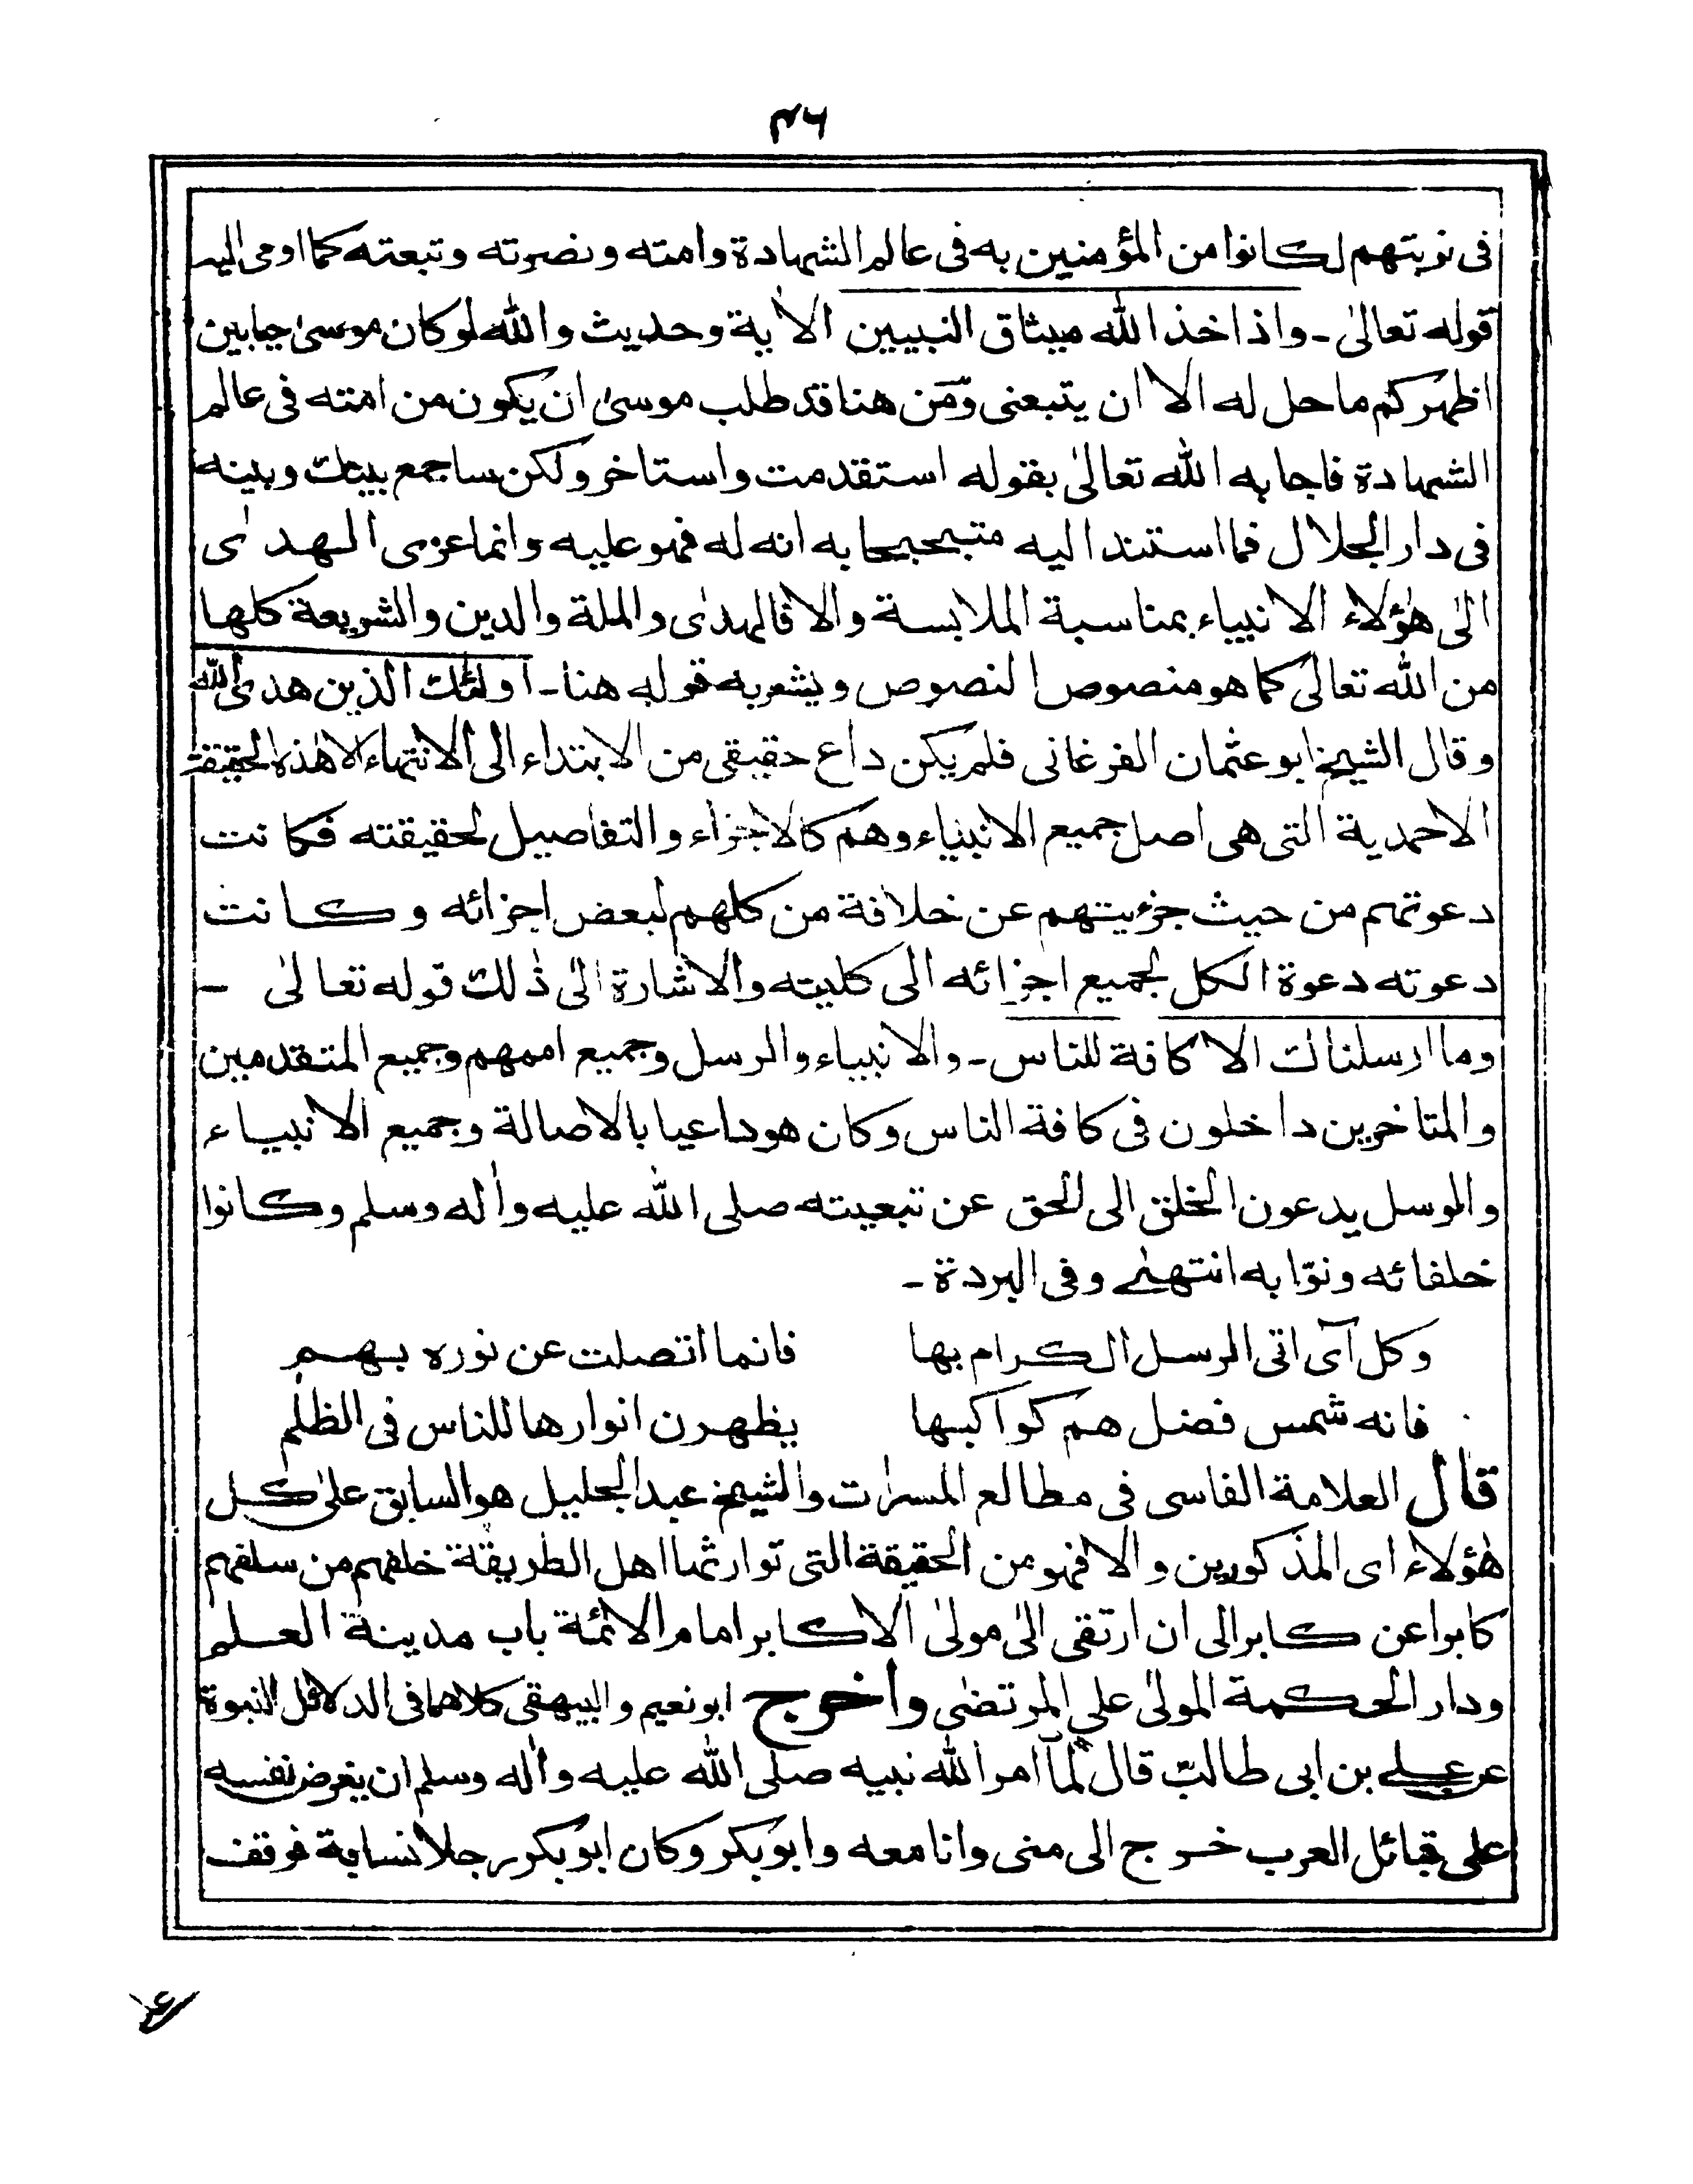 ٤٣
فی نوبتهم لكانوا من المؤمنين به فی عالم الشهادة وامته ونصرته وتبعته كما اومی اليه
قوله تعالیٰ ـ واذ اخذ الله ميثاق النبيين الاٰية وحديث والله لو كان موسیٰ حيا بين
اظهركم ما حل له الا ان يتبعنی ومن هنا قد طلب موسیٰ ان يكون من امته فی عالم
الشهادة فاجابه الله تعالیٰ بقوله استقدمت واستاخر ولكن ساجمع بينك وبينه
فی دار الجلال فما استند اليه متبجحا به انه له فهو عليه وانما عزی الهدیٰ
الیٰ هٰؤلاء الانبياء بمناسبة الملابسة والا فالهدیٰ والملة والدين والشريعة كلها
من الله تعالیٰ كما هو منصوص النصوص ويشعر به قوله هنا ـ اولئك الذين هدی الله
وقال الشيخ ابو عثمان الفرغانی فلم يكن داع حقيقی من الابتداء الی الانتهاء الا هٰذه الحقيقة
الاحمدية التی هی اصل جميع الانبياء وهم كالاجزاء والتفاصيل لحقيقته فكانت
دعوتهم من حيث جزئيتهم عن خلافة من كلهم لبعض اجزائه وكانت
دعوته دعوة الكل لجميع اجزائه الی كليته والاشارة الیٰ ذٰلك قوله تعالیٰ ـ
وما ارسلناك الا كافة للناس ـ والانبياء والرسل وجميع اممهم وجميع المتقدمين
والمتاخرين داخلون فی كافة الناس وكان هو داعيا بالاصالة وجميع الانبياء
والرسل يدعون الخلق الی الحق عن تبعيته صلی الله عليه واٰله وسلم وكانوا
خلفائه ونوّابه انتهیٰ وفی البردة ـ
وكل آی اتی الرسل الكرام بها فانما اتصلت عن نوره بهم
فانه شمس فضل هم كواكبها يظهرن انوارها للناس فی الظلم
قال العلامة الفاسی فی مطالع المسرات والشيخ عبد الجليل هو السابق علیٰ كل
هٰؤلاء ای المذكورين والا فهو من الحقيقة التی توارثها اهل الطريقة خلفهم من سلفهم
كابرا عن كابر الی ان ارتقی الیٰ مولیٰ الاكابر امام الائمة باب مدينة العلم
ودار الحكمة المولیٰ علی المرتضیٰ واخرج ابو نعيم والبيهقی كلاهما فی الدلائل النبوة
عن علی بن ابی طالب قال لما امر الله نبيه صلی الله عليه واٰله وسلم ان يعرض نفسه
علی قبائل العرب خرج الی منی وانا معه وابو بكر وكان ابو بكر رجلا نسابة فوقف